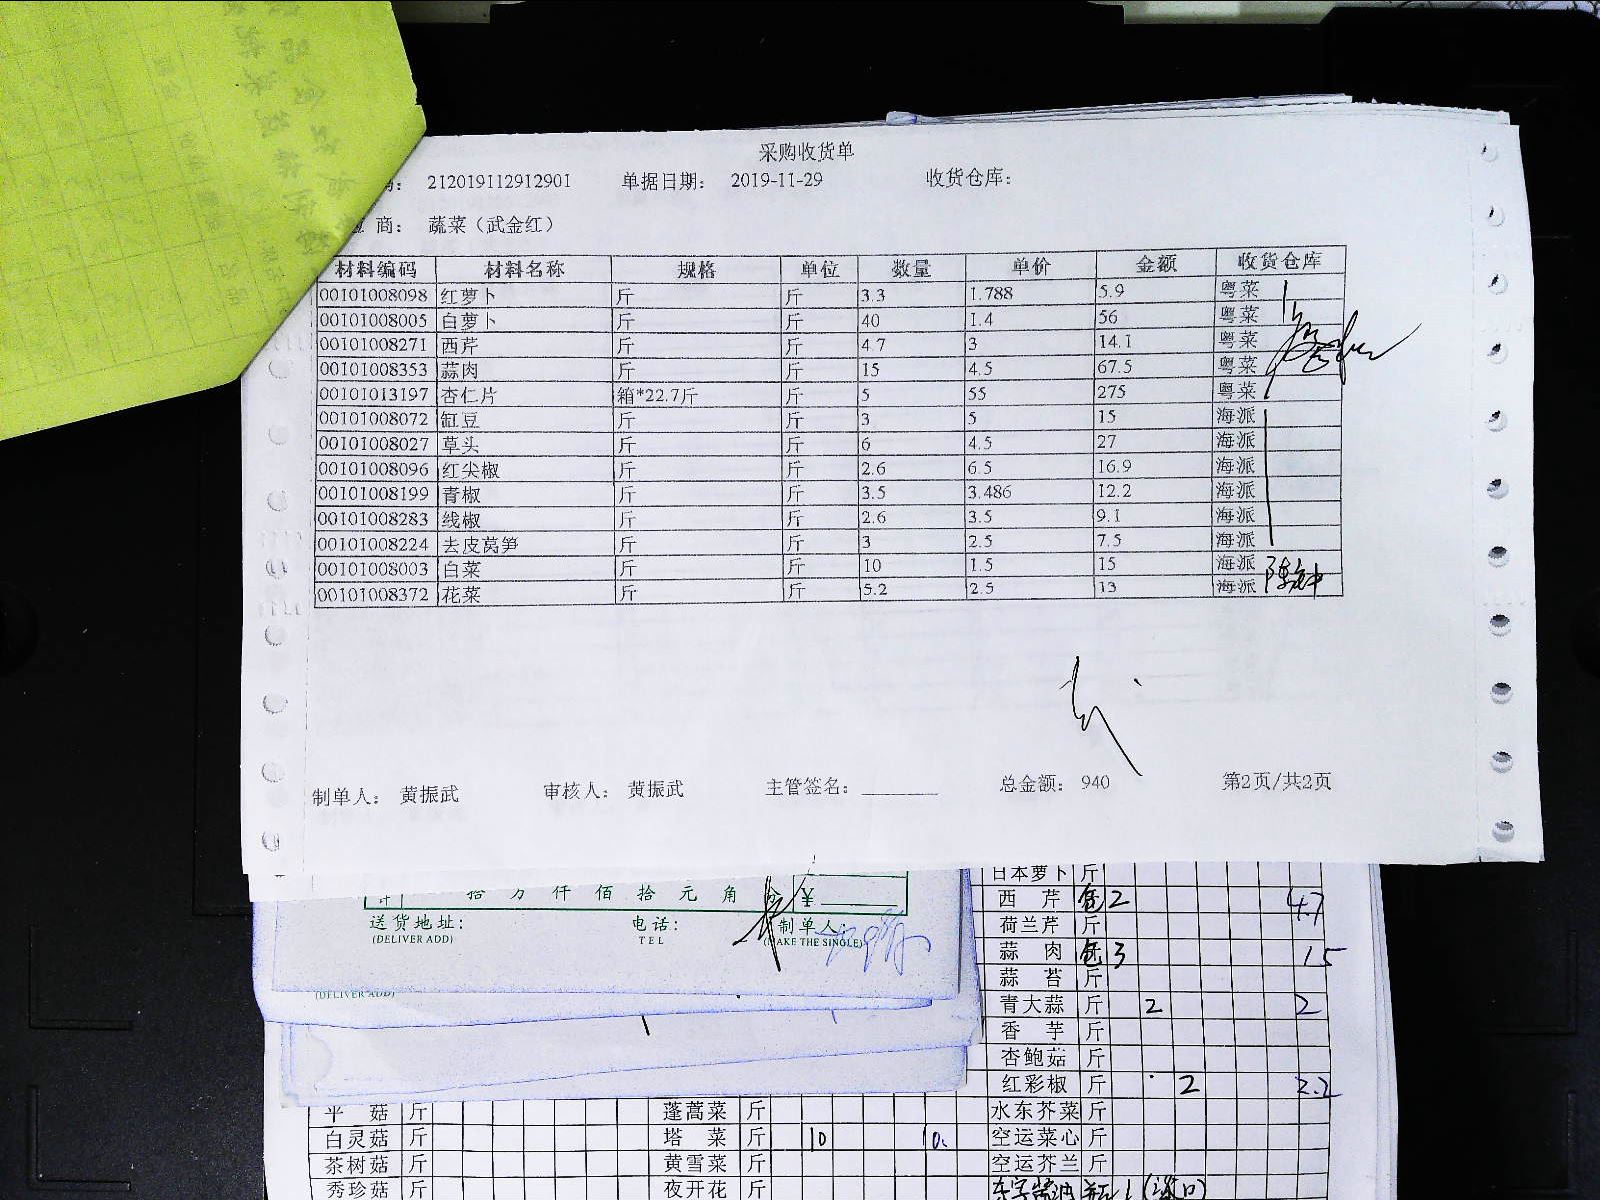 采购收货单
212019112912901 单据日期： 2019-11-29 收货仓库：
商： 蔬菜（武金红）
材料编码 材料名称 规格 单位 数量 单价 金额 收货仓库
00101008098 红萝卜 斤 斤 3.3 1.788 5.9 粤菜
00101008005 白萝卜 斤 斤 40 1.4 56 粤菜
00101008271 西芹 斤 斤 4.7 3 14.1 粤菜
00101008353 蒜肉 斤 斤 15 4.5 67.5 粤菜
00101013197 杏仁片 箱*22.7斤 斤 5 55 275 粤菜
00101008072 缸豆 斤 斤 3 5 15 海派
00101008027 草头 斤 斤 6 4.5 27 海派
00101008096 红尖椒 斤 斤 2.6 6.5 16.9 海派
00101008199 青椒 斤 斤 3.5 3.486 12.2 海派
00101008283 线椒 斤 斤 2.6 3.5 9.1 海派
00101008224 去皮莴笋 斤 斤 3 2.5 7.5 海派
00101008003 白菜 斤 斤 10 1.5 15 海派
00101008372 花菜 斤 斤 5.2 2.5 13 海派
制单人： 黄振武 审核人： 黄振武 主管签名： 总金额： 940 第2页/共2页
拾 万 仟 佰 拾 元 角 ¥
送货地址： 电话： 制单人：
(DELIVER ADD) TEL (MAKE THE SINGLE)
(DELIVER ADD)
日本萝卜 斤
西芹 2 4.7
荷兰芹 斤
蒜肉 3 15
蒜苔 斤
青大蒜 斤 2 2
香芋 斤
杏鲍菇 斤
红彩椒 斤 2 2.2
平菇 斤 蓬蒿菜 斤 水东芥菜 斤
白灵菇 斤 塔菜 斤 10 10. 空运菜心 斤
茶树菇 斤 黄雪菜 斤 空运芥兰 斤
秀珍菇 斤 夜开花 斤